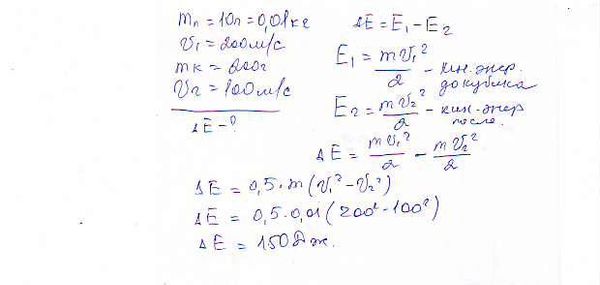 mп = 10г = 0,01кг
V₁ = 200м/с
mк = 200г
V₂ = 100м/с
ΔE - ?
ΔE = E₁ - E₂
E₁ = mV₁²/2 - кин. энер. до кубика
E₂ = mV₂²/2 - кин. энер после.
ΔE = mV₁²/2 - mV₂²/2
ΔE = 0,5·m(V₁² - V₂²)
ΔE = 0,5·0,01(200² - 100²)
ΔE = 150Дж.